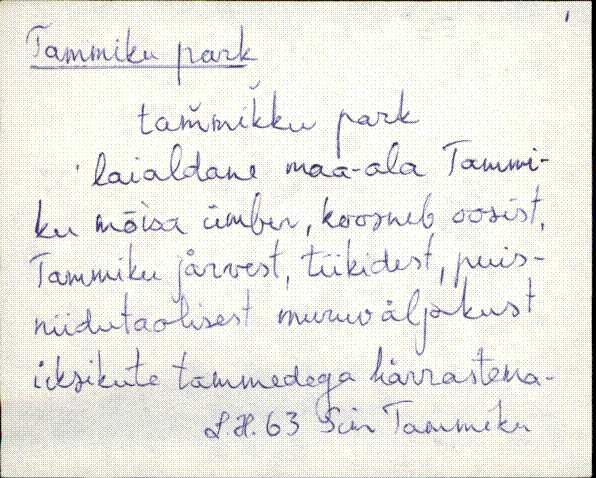 Tammiku park
tam̆mik̆ku park
laialdane maa-ala Tammi-
ku mõisa ümber, koosneb oosist,
Tammiku järvest, tiikidest, puis-
niidutaolisest muruväljakust
üksikute tammedega härrastema-
63 Sim Tammiku